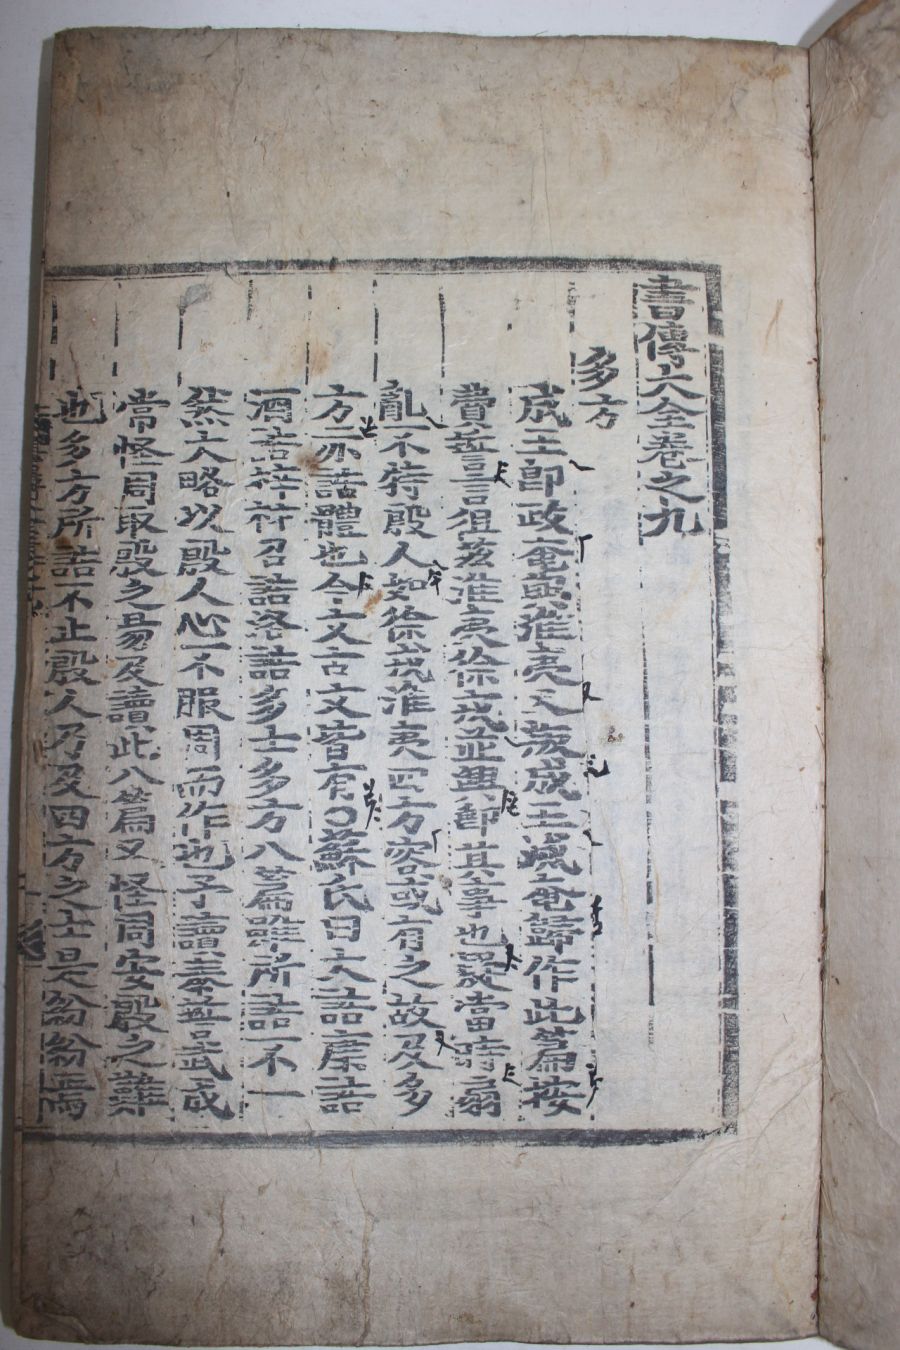 書傳大全卷之九
多方
成王卽政奄與淮夷又叛成王滅奄歸作此篇按
費誓言徂玆淮夷徐戎並興卽其事也疑當時扇
亂不特殷人如徐戎淮夷四方容或有之故及多
方亦誥體也今文古文皆有○蘇氏曰大誥康誥
酒誥梓材召誥洛誥多士多方八篇雖所誥不一
然大略以殷人心不服周而作也予讀泰誓武成
常怪周取殷之易及讀此八篇又怪周安殷之難
也多方所誥不止殷人乃及四方之士是紛紛焉